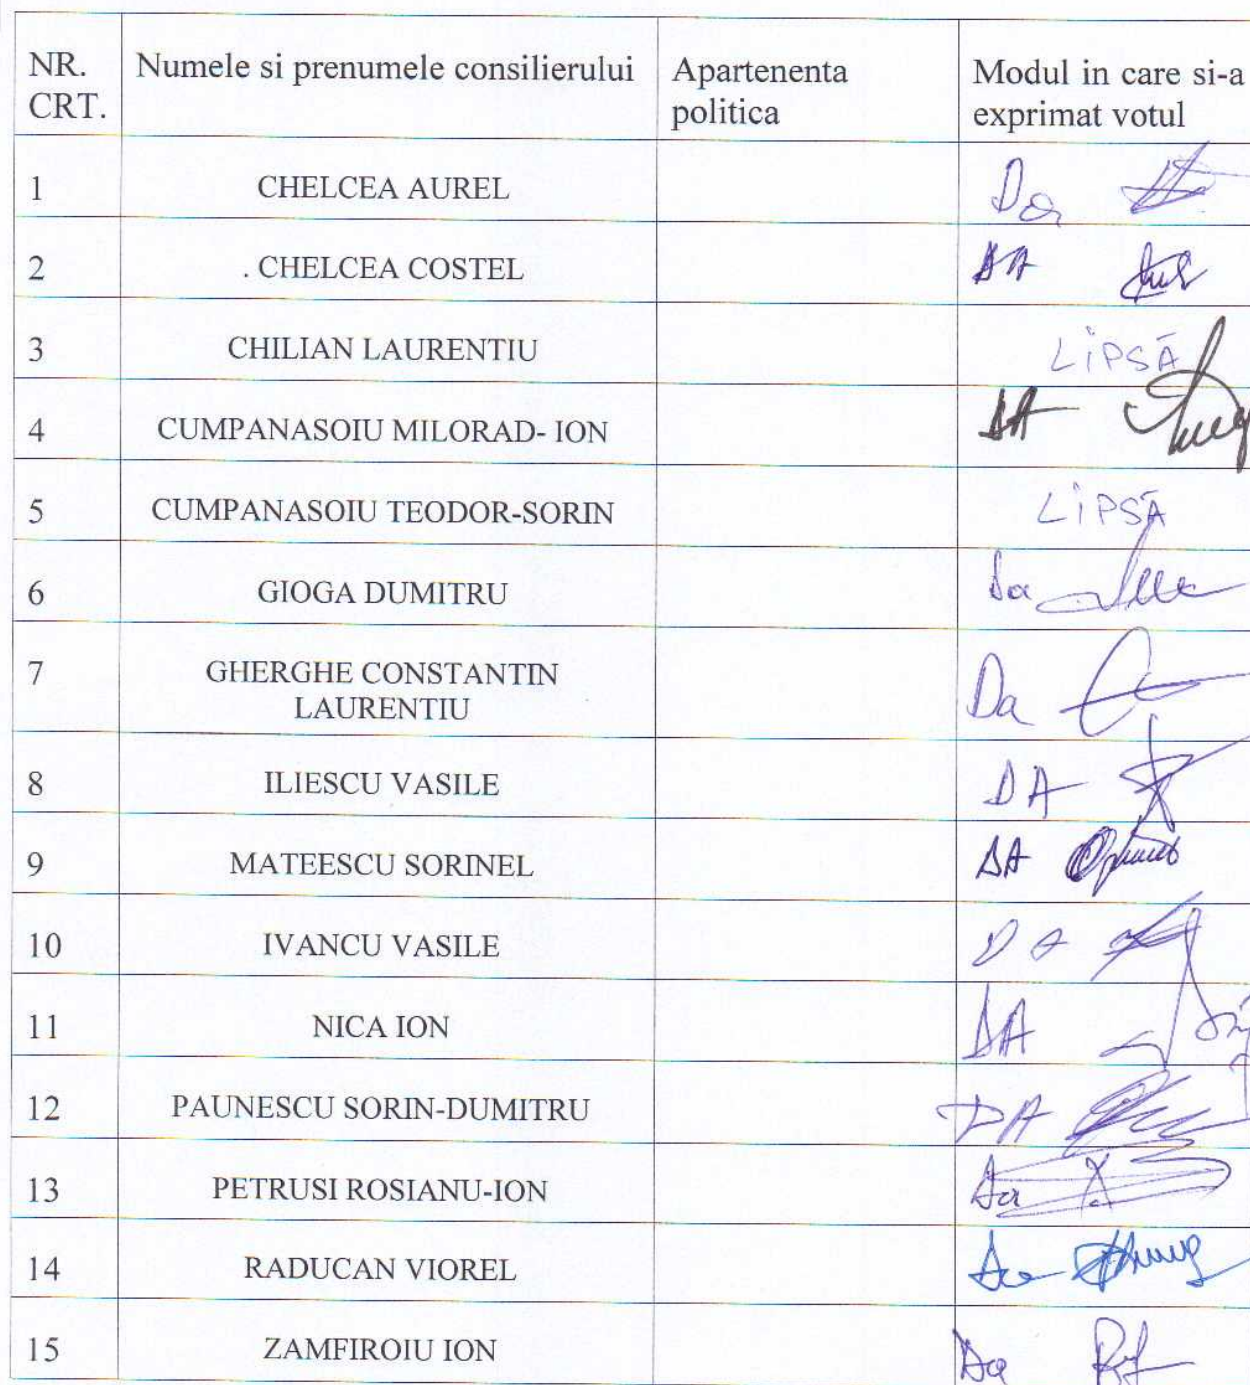 NR. CRT. Numele si prenumele consilierului Apartenenta politica Modul in care si-a exprimat votul
1 CHELCEA AUREL Da
2 . CHELCEA COSTEL DA
3 CHILIAN LAURENTIU LiPSĂ
4 CUMPANASOIU MILORAD- ION DA
5 CUMPANASOIU TEODOR-SORIN LiPSĂ
6 GIOGA DUMITRU Da
7 GHERGHE CONSTANTIN LAURENTIU Da
8 ILIESCU VASILE DA
9 MATEESCU SORINEL DA
10 IVANCU VASILE DA
11 NICA ION DA
12 PAUNESCU SORIN-DUMITRU DA
13 PETRUSI ROSIANU-ION Da
14 RADUCAN VIOREL Da
15 ZAMFIROIU ION Da